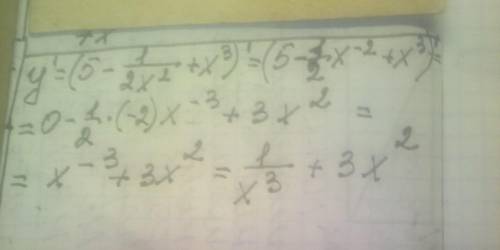 +x
y' = (5 - 1/(2x²) + x³)' = (5 - 1/2 x⁻² + x³)' =
= 0 - 1/2 · (-2)x⁻³ + 3x² =
= x⁻³ + 3x² = 1/x³ + 3x²